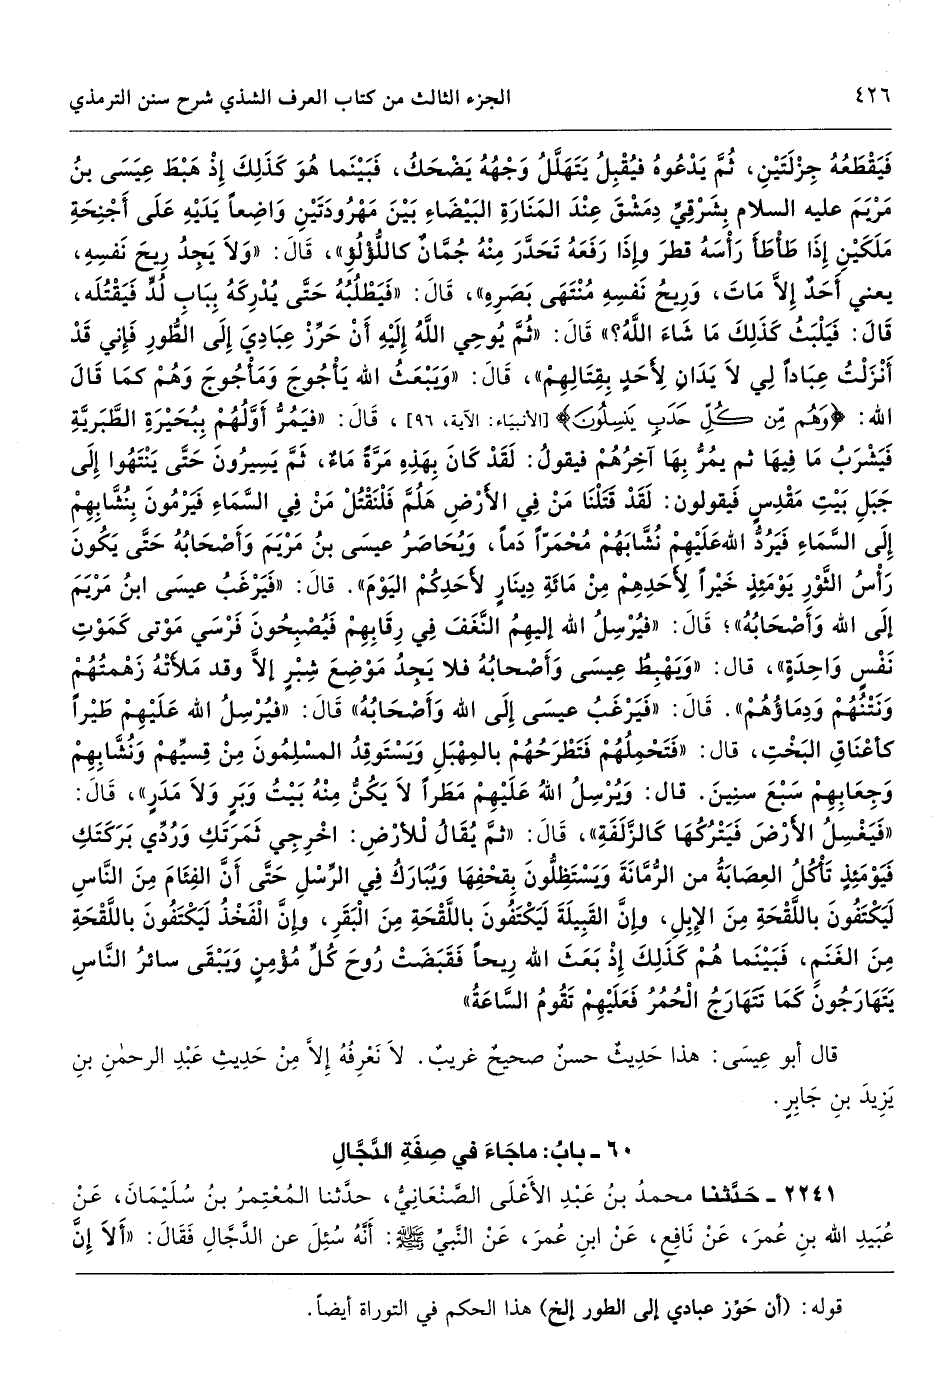 ٤٢٦ الجزء الثالث من كتاب العرف الشذي شرح سنن الترمذي
فَيَقْطَعُهُ جِزْلَتَيْنِ، ثُمَّ يَدْعُوهُ فيُقْبِلُ يَتَهَلَّلُ وَجْهُهُ يَضْحَكُ، فَبَيْنَما هُوَ كَذَلِكَ إِذْ هَبَطَ عِيَسَى بنُ
مَرْيَمَ عليه السلام بِشَرْقِيِّ دِمَشْقَ عِنْدَ المَنَارَةِ البَيْضَاءِ بَيْنَ مَهْرُودَتَيْنِ وَاضِعاً يَدَيْهِ عَلَى أَجْنِحَةِ
مَلَكَيْنِ إِذَا طَأْطَأَ رَأْسَهُ قطَرَ وإِذَا رَفَعَهُ تَحَدَّرَ مِنْهُ جُمَّانٌ كاللُّؤْلُؤِ»، قَالَ: «وَلاَ يَجِدُ رِيحَ نَفسِهِ،
يعني أَحَدٌ إِلاَّ مَاتَ، وَرِيحُ نَفَسِهِ مُنْتَهَى بَصَرِهِ»، قَالَ: «فَيَطْلُبُهُ حَتَّى يُدْرِكَهُ بِبَابِ لُدٍّ فَيَقْتُلَه،
قَالَ: فَيَلْبَثُ كَذَلِكَ مَا شَاءَ اللَّهُ؟» قَالَ: «ثُمَّ يُوحِي اللَّهُ إِلَيْهِ أَنْ حَرِّزْ عِبادِيَ إِلَى الطُّورِ فَإِني قَدْ
أَنْزَلْتُ عِبَاداً لِي لاَ يَدَانِ لِأَحَدٍ بِقِتَالِهِمْ»، قَالَ: «وَيَبْعَثُ الله يَأْجُوجَ وَمَأْجُوجَ وَهُمْ كما قَالَ
الله: ﴿وَهُم مِّن كُلِّ حَدَبٍ يَنسِلُونَ﴾ [الأنبياء: الآية، ٩٦]، قَالَ: «فيَمُرُّ أَوَّلُهُمْ بِبُحَيْرَةِ الطَّبَرِيَّةِ
فَيَشْرَبُ مَا فِيهَا ثم يمُرُّ بِهَا آخِرُهُمْ فيقولُ: لَقَدْ كَانَ بِهَذِهِ مَرَّةً مَاءٌ، ثَمَّ يَسِيرُونَ حَتَّى يَنْتَهُوا إِلَى
جَبَلِ بَيْتِ مَقْدِسٍ فَيقولون: لَقَدْ قَتَلْنَا مَنْ فِي الأَرْضِ هَلُمَّ فَلْنَقْتُلْ مَنْ في السَّمَاءِ فَيَرْمُونَ بِنُشَّابِهِمْ
إِلَى السَّمَاءِ فَيَرُدُّ الله عَلَيْهِمْ نُشَّابَهُمْ مُحْمَرّاً دَماً، وَيُحَاصَرُ عيسَى بنُ مَرْيَمَ وَأَصْحَابُهُ حَتَّى يَكُونَ
رَأْسُ الثَّوْرِ يَوْمَئِذٍ خَيْراً لِأَحَدِهِمْ مِنْ مَائَةِ دِينَارٍ لأَحَدِكُمْ اليَوْمَ». قالَ: «فَيَرْغَبُ عيسَى ابنُ مَرْيَمَ
إِلَى الله وَأَصْحَابُهُ»؛ قَالَ: «فيُرْسِلُ الله إليهِمُ النَّغَفَ فِي رِقَابِهِمْ فَيُصْبِحُونَ فَرْسَي مَوْتى كَمَوْتِ
نَفْسٍ وَاحِدَةٍ»، قال: «وَيَهْبِطُ عِيسَى وَأَصْحابُهُ فلا يَجِدُ مَوْضِعَ شِبْرٍ إلاَّ وقد مَلأَتْهُ زَهْمتُهُمْ
وَنَتْنُهُمْ وَدِمَاؤُهُمْ». قَالَ: «فَيَرْغَبُ عيسَى إِلَى الله وَأَصْحَابُهُ» قَالَ: «فيُرْسِلُ الله عَلَيْهِمْ طَيْراً
كأَعْنَاقِ البَخْتِ، قال: «فَتَحْمِلُهُمْ فَتَطْرَحُهُمْ بالمِهْبَلِ وَيَسْتَوقِدُ المسْلِمُونَ مِنْ قِسيِّهِمْ وَنُشَّابِهِمْ
وَجِعَابِهِمْ سَبْعَ سنِينَ. قال: وَيُرْسِلُ اللهُ عَلَيْهِمْ مَطَراً لاَ يَكُنُّ مِنْهُ بَيْتُ وَبَرٍ وَلاَ مَدَرٍ»، قَالَ:
«فَيَغْسِلُ الأَرْضَ فَيَتْرُكُهَا كَالزَّلَفَةِ»، قَالَ: «ثمَّ يُقَالُ لْلأَرْضِ: اخْرِجِي ثَمَرَتَكِ وَرُدِّي بَرَكَتَكِ
فَيَوْمَئِذٍ تَأْكُلُ العِصَابَةُ من الرُّمَّانَةَ وَيَسْتَظِلُّونَ بِقحْفِهَا وَيُبَارَكُ فِي الرِّسْلِ حَتَّى أَنَّ الفِئَامَ مِنَ النَّاسِ
لَيَكْتَفُونَ بِاللَّقْحَةِ مِنَ الإِبِلِ، وإِنَّ القَبِيلَةَ لَيَكْتَفُونَ بِاللَّقْحَةِ مِنَ الْبَقَرِ، وإِنَّ الْفَخْذَ لَيَكْتَفُونَ بِاللَّقْحَةِ
مِنَ الغَنَمِ، فَبَيْنَما هُمْ كَذَلِكَ إِذْ بَعَثَ الله رِيحاً فَقَبَضَتْ رُوحَ كُلِّ مُؤْمِنٍ وَيَبْقَى سائرُ النَّاسِ
يَتَهَارَجُونَ كَمَا تَتَهَارَجُ الْحُمُرُ فَعَلَيْهِمْ تَقُومُ السَّاعَةُ»
قال أبو عِيسَى: هذا حَدِيثٌ حسنٌ صحيحٌ غريبٌ. لاَ نَعْرِفُهُ إِلاَّ مِنْ حَدِيثِ عَبْدِ الرحمٰنِ بنِ
يَزِيدَ بنِ جَابِرٍ.
٦٠ ـ بابُ: ماجَاءَ في صِفَةِ الدَّجَّالِ
٢٢٤١ ـ حَدَّثنا محمدُ بنُ عَبْدِ الأَعْلَى الصَّنْعَانِيُّ، حدَّثنا المُعْتِمرُ بنُ سُلَيْمَانَ، عَنْ
عُبَيدِ الله بنِ عُمرَ، عَنْ نَافِعٍ، عَنْ ابنِ عمرَ، عَنْ النَّبيِّ ﷺ: أَنَّهُ سُئِلَ عن الدَّجَّالِ فَقَالَ: «أَلاَ إِنَّ
قوله: (أن حَوِّز عبادي إلى الطور إلخ) هذا الحكم في التوراة أيضاً.